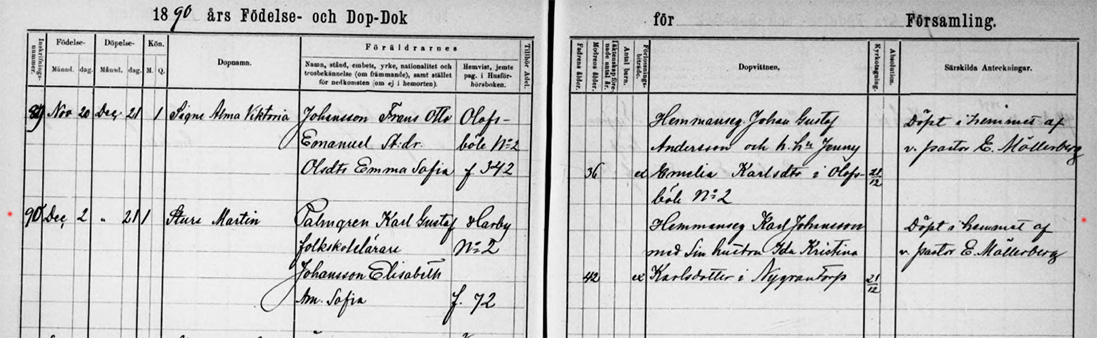 1890 års Födelse- och Dop-Dok
för Församling.
Inskrifnings-nummer.
Födelse-
Månad. dag.
Döpelse-
Månad. dag.
Kön.
M. Q.
Dopnamn.
Föräldrarnes
Namn, stånd, embets, yrke, nationalitet och
trosbekännelse (om främmande), samt stället
för nedkomsten (om ej i hemorten).
Hemvist, jemte
pag. i Husför-
hörsboken.
Tillhör Adel.
Fadrens ålder.
Modrens ålder.
Antal barn.
Dopvittnen.
Kyrkotagning.
Absolution.
Särskilda Anteckningar.
89 Nov 20 Dec. 21 1 Signe Alma Viktoria
Johansson Frans Otto
Emanuel St:dr.
Olsdtr Emma Sofia
Olofs-
böle No 2
f 342
36
Hemmanseg Johan Gustaf
Andersson och h. hu Jenny
Emelia Karlsdtr i Olofs-
böle No 2
21/12
Döpt i hemmet af
v. pastor E. Möllerberg
90 Dec, 2 " 21 1 Sture Martin
Palmgren Karl Gustaf
folkskolelärare
Johansson Elisabeth
Am. Sofia
Harby
No 2
f. 72
42
Hemmanseg Karl Johansson
med sin hustru Ida Kristina
Karlsdotter i Nygrantorp
21/12
Döpt i hemmet af
v. pastor E. Möllerberg